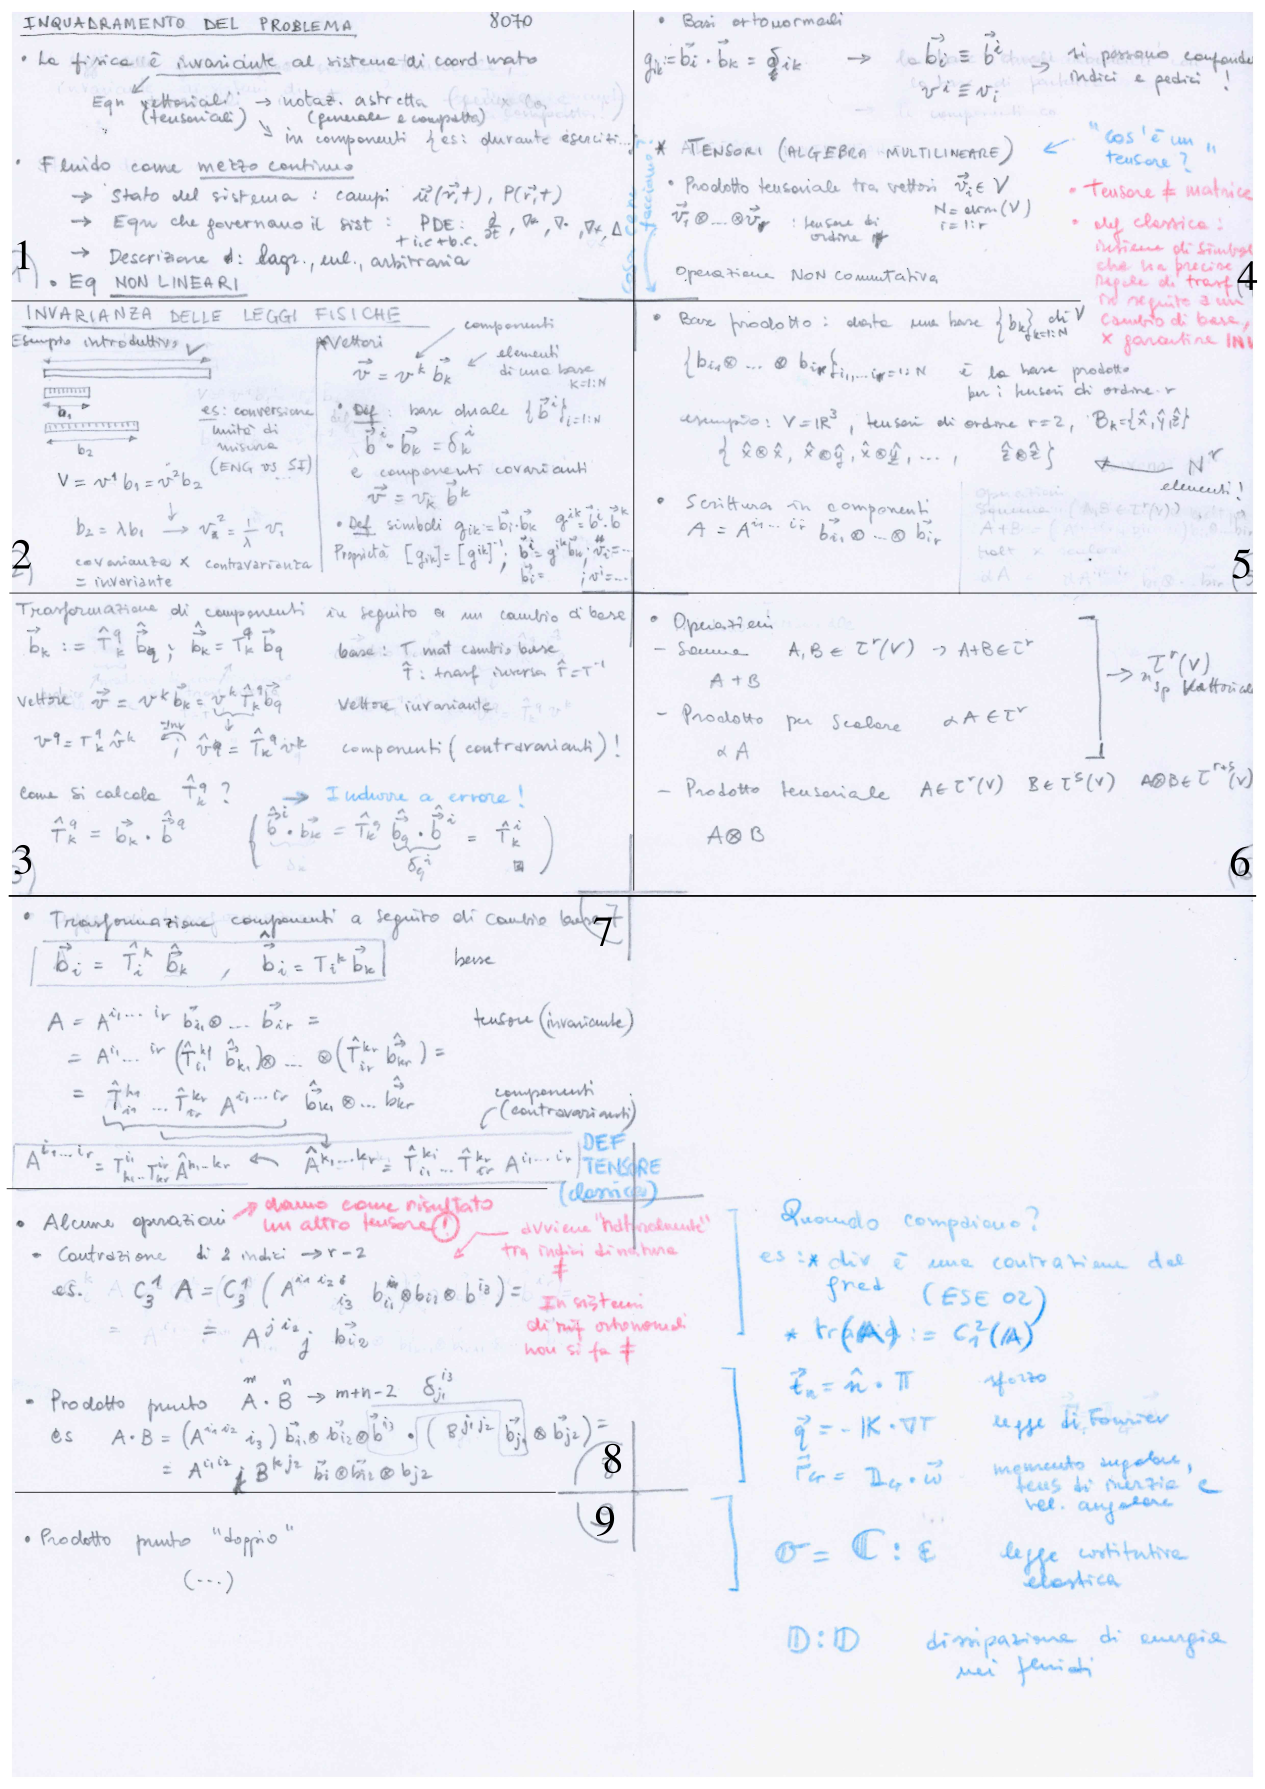 INQUADRAMENTO DEL PROBLEMA 8070
• La fisica è invariante al sistema di coordinate
Eqn vettoriali → notaz. astretta
(tensoriali) (generale e compatta)
↘ in componenti { es: durante esercizi...
• Fluido come mezzo continuo
→ Stato del sistema : campi u⃗(r⃗,t), P(r⃗,t)
→ Eqn che governano il sist : PDE: ∂/∂t, ∇, ∇·, ∇×, Δ
+ i.c + b.c.
→ Descrizione : lagr., eul., arbitraria
1
• Eq NON LINEARI
INVARIANZA DELLE LEGGI FISICHE
Esempio introduttivo V
b1
b2
es: conversione
unità di
misura
(ENG vs SI)
V = v¹ b₁ = v² b₂
b₂ = λb₁ → v² = 1/λ v₁
covarianza × contravarianza
= invariante
2
Vettori
componenti
v⃗ = v^k b⃗_k
elementi
di una base
k=1:N
• Def : base duale {b⃗^i}_{i=1:N}
b⃗^i · b⃗_k = δ^i_k
e componenti covarianti
v⃗ = v_k b⃗^k
• Def simboli g_ik = b⃗_i·b⃗_k g^ik = b⃗^i·b⃗^k
Proprietà [g_ik] = [g^ik]^-1; b⃗^i = g^ik b⃗_k; v_i = ...
b⃗_i = ; v^i = ...
Trasformazione di componenti in seguito a un cambio di base
b⃗_k := T̂_k^q b̂⃗_q ; b̂⃗_k = T_k^q b⃗_q base : T mat cambio base
T̂ : trasf inversa T̂ = T^-1
vettore v⃗ = v^k b⃗_k = v^k T̂_k^q b̂⃗_q vettore invariante
v^q = T_k^q v̂^k , v̂^q = T̂_k^q v^k componenti (contravarianti) !
Come si calcola T̂_k^q ? → Indurre a errore !
T̂_k^q = b⃗_k · b̂⃗^q ( b̂⃗^i · b⃗_k = T̂_k^q b̂⃗_q · b̂⃗^i = T̂_k^i )
δ_q^i
3
• Basi ortonormali
g_ik = b⃗_i · b⃗_k = δ_ik → b⃗_i ≡ b⃗^i → si possono confondere
v^i ≡ v_i indici e pedici !
* TENSORI (ALGEBRA MULTILINEARE) ← "cos'è un
tensore?"
• Prodotto tensoriale tra vettori v⃗_i ∈ V
N = dim(V)
v⃗_1 ⊗ ... ⊗ v⃗_r : tensore di i = 1:r
ordine r
Operazione NON commutativa
• Tensore ≠ matrice
• def classica :
insieme di simboli
che ha precise
regole di trasf
in seguito a un
cambio di base,
× garantire INV
4
• Base prodotto : data una base {b_k}_{k=1:N} di V
{b_i1 ⊗ ... ⊗ b_ir}_{i1,...ir=1:N} è la base prodotto
per i tensori di ordine r
esempio : V = ℝ³, tensori di ordine r=2, B_k = {x̂, ŷ, ẑ}
{ x̂⊗x̂, x̂⊗ŷ, x̂⊗ẑ, ..., ẑ⊗ẑ } ← N^r
elementi !
• Scrittura in componenti
A = A^{i1...ir} b⃗_i1 ⊗ ... ⊗ b⃗_ir
5
• Operazioni
- Somma A, B ∈ τ^r(V) → A+B ∈ τ^r
A + B
→ τ^r(V)
sp vettoriale
- Prodotto per scalare αA ∈ τ^r
αA
- Prodotto tensoriale A ∈ τ^r(V) B ∈ τ^s(V) A⊗B ∈ τ^{r+s}(V)
A⊗B
6
• Trasformazione componenti a seguito di cambio base
7
b⃗_i = T̂_i^k b̂⃗_k , b̂⃗_i = T_i^k b⃗_k base
A = A^{i1...ir} b⃗_i1 ⊗ ... b⃗_ir = tensore (invariante)
= A^{i1...ir} (T̂_i1^k1 b̂⃗_k1) ⊗ ... ⊗ (T̂_ir^kr b̂⃗_kr) =
= T̂_i1^k1 ... T̂_ir^kr A^{i1...ir} b̂⃗_k1 ⊗ ... b̂⃗_kr componenti
(contravarianti)
A^{i1...ir} = T_k1^i1 ... T_kr^ir Â^{k1...kr} ← Â^{k1...kr} = T̂_i1^k1 ... T̂_ir^kr A^{i1...ir}
DEF
TENSORE
(classica)
• Alcune operazioni → danno come risultato
un altro tensore (!)
• Contrazione di 2 indici → r-2
avviene "naturalmente"
tra indici di natura
≠
es. C_3^1 A = C_3^1 ( A^{i1 i2}_{i3} b_i1 ⊗ b_i2 ⊗ b^i3 ) =
= A^{j i2}_j b⃗_i2
In sistemi
di rif ortonormali
non si fa ≠
• Prodotto punto A^m · B^n → m+n-2 δ_j1^i3
es A·B = (A^{i1 i2}_{i3}) b⃗_i1 ⊗ b⃗_i2 ⊗ b⃗^i3 · ( B^{j1 j2} b⃗_j1 ⊗ b⃗_j2 ) =
= A^{i1 i2}_j B^{k j2} b⃗_i ⊗ b⃗_i2 ⊗ b_j2
8
9
• Prodotto punto "doppio"
(...)
Quando compaiono ?
es : * div è una contrazione del
grad (ESE 02)
* tr(A) := C_1^2(A)
t⃗_n = n̂ · 𝕋 sforzo
q⃗ = -𝕂 · ∇T legge di Fourier
Γ⃗_G = 𝕀_G · ω⃗ momento angolare,
tens di inerzia e
vel. angolare
σ = ℂ : ε legge costitutiva
elastica
𝔻 : 𝔻 dissipazione di energia
nei fluidi